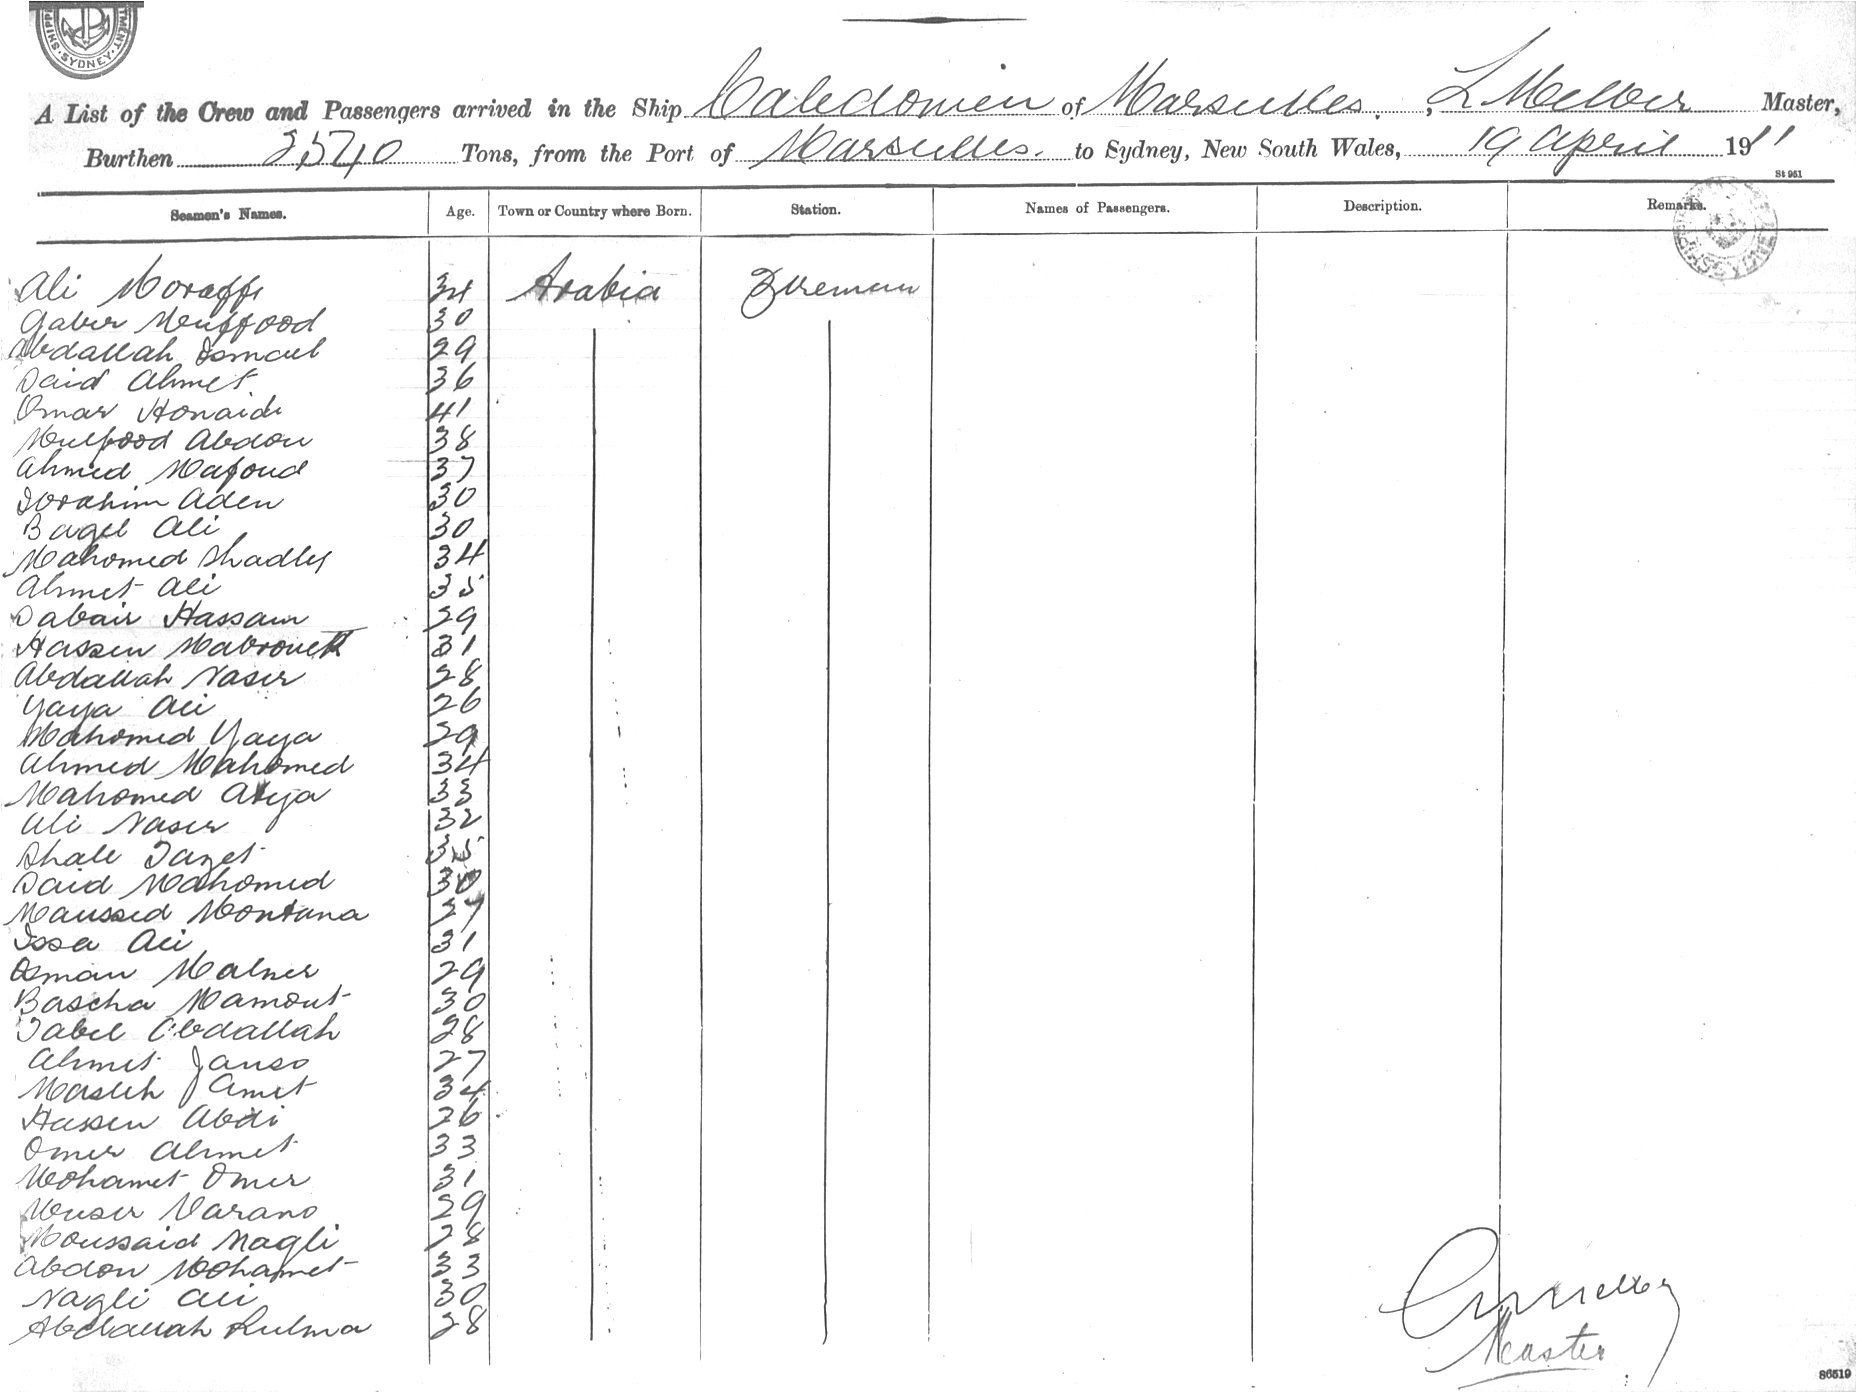 SHIPP TMENT SYDNEY
A List of the Crew and Passengers arrived in the Ship Caledonien of Marseilles, Master,
Burthen 2540 Tons, from the Port of Marseilles. to Sydney, New South Wales, 19 April 1911
St 951
Seamen's Names. Age. Town or Country where Born. Station. Names of Passengers. Description. Remarks.
Ali Moraffi 34 Arabia Fireman
Gaber Muffood 30
Abdallah Ismail 29
Said Ahmet 36
Omar Honaidi 41
Mulfood Abdou 38
Ahmed Mafoud 37
Ibrahim Aden 30
Bagil Ali 30
Mahomed Shadly 34
Ahmet Ali 35
Dabair Hassam 29
Hassen Mabrouck 31
Abdallah Naser 28
Yaya Ali 26
Mahomed Yaya 29
Ahmed Mahomed 34
Mahomed 33
Ali Naser 32
Shale 35
Said Mahomed 30
Maussed Montana 27
Issa Ali 31
Osman 29
Bascha Mamout 30
Abdallah 28
Ahmet 27
Masleh Amet 34
Hassen Abdi 26
Omer Ahmet 33
Mohamet Omer 31
Varano 29
Moussaid Nagli 28
Abdou Mohamet 33
Nagli Ali 30
Abdallah 28
Master
86519